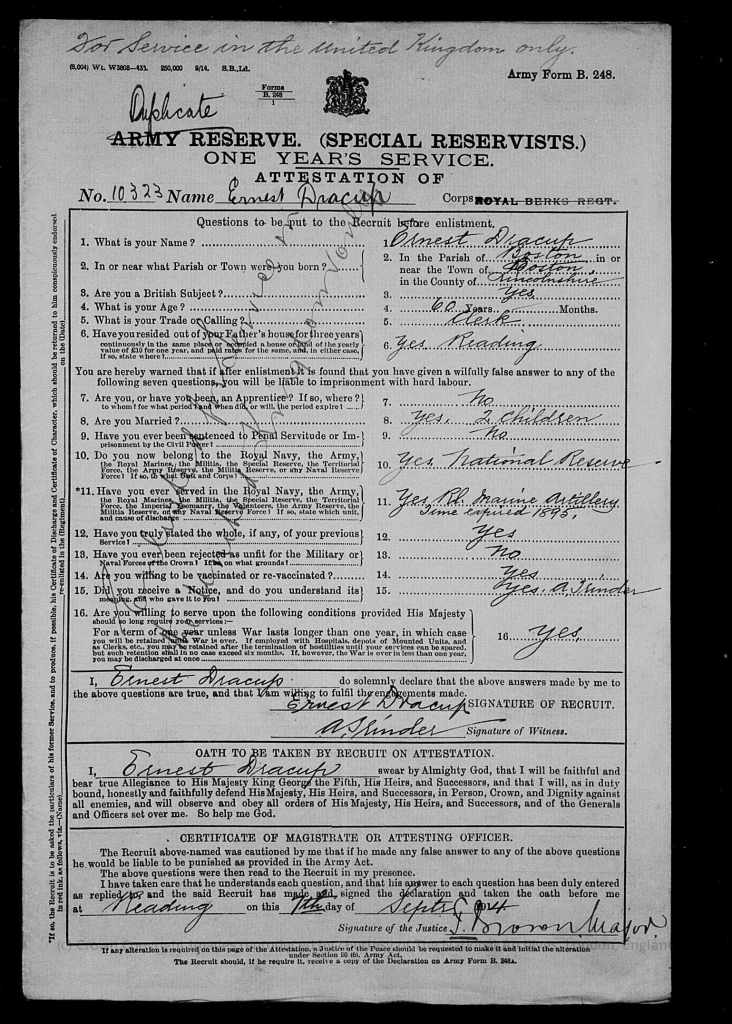 For Service in the United Kingdom only.
(8,004) Wt. W3808—435. 250,000 9/14. S.B.,Ld.
Army Form B. 248.
Forms
B. 248
1
Duplicate
ARMY RESERVE. (SPECIAL RESERVISTS.)
ONE YEAR'S SERVICE.
ATTESTATION OF
No. 10323 Name Ernest Dracup Corps ROYAL BERKS REGT.
Questions to be put to the Recruit before enlistment.
1. What is your Name? 1. Ernest Dracup
2. In or near what Parish or Town were you born? 2. In the Parish of Boston in or
near the Town of Boston
in the County of Lincolnshire
3. Are you a British Subject? 3. Yes
4. What is your Age? 4. 60 Years Months.
5. What is your Trade or Calling? 5. Clerk
6. Have you resided out of your Father's house for three years
continuously in the same place or occupied a house or land of the yearly
value of £10 for one year, and paid rates for the same, and, in either case,
if so, state where? 6. Yes Reading
You are hereby warned that if after enlistment it is found that you have given a wilfully false answer to any of the
following seven questions, you will be liable to imprisonment with hard labour.
7. Are you, or have you been, an Apprentice? If so, where?
to whom? for what period? and when did or will, the period expire? 7. No
8. Are you Married? 8. Yes, 2 children
9. Have you ever been sentenced to Penal Servitude or Im-
prisonment by the Civil Power? 9. No
10. Do you now belong to the Royal Navy, the Army,
the Royal Marines, the Militia, the Special Reserve, the Territorial
Force, the Army Reserve, the Militia Reserve, or any Naval Reserve
Force? If so, to what Unit and Corps? 10. Yes National Reserve
*11. Have you ever served in the Royal Navy, the Army,
the Royal Marines, the Militia, the Special Reserve, the Territorial
Force, the Imperial Yeomanry, the Volunteers, the Army Reserve, the
Militia Reserve, or any Naval Reserve Force? If so, state which unit,
and cause of discharge 11. Yes Rl. Marine Artillery
Time expired 1895.
12. Have you truly stated the whole, if any, of your previous
Service? 12. Yes
13. Have you ever been rejected as unfit for the Military or
Naval Forces of the Crown? If so, on what grounds? 13. No
14. Are you willing to be vaccinated or re-vaccinated? 14. Yes
15. Did you receive a Notice, and do you understand its
meaning, and who gave it to you? 15. Yes. A Trinder
16. Are you willing to serve upon the following conditions provided His Majesty
should so long require your services:—
For a term of one year unless War lasts longer than one year, in which case
you will be retained until War is over. If employed with Hospitals, depots of Mounted Units, and
as Clerks, etc., you may be retained after the termination of hostilities until your services can be spared,
but such retention shall in no case exceed six months. If, however, the War is over in less than one year,
you may be discharged at once 16. Yes.
I, Ernest Dracup do solemnly declare that the above answers made by me to
the above questions are true, and that I am willing to fulfil the engagements made.
Ernest Dracup SIGNATURE OF RECRUIT.
A Trinder Signature of Witness.
OATH TO BE TAKEN BY RECRUIT ON ATTESTATION.
I, Ernest Dracup swear by Almighty God, that I will be faithful and
bear true Allegiance to His Majesty King George the Fifth, His Heirs, and Successors, and that I will, as in duty
bound, honestly and faithfully defend His Majesty, His Heirs, and Successors, in Person, Crown, and Dignity against
all enemies, and will observe and obey all orders of His Majesty, His Heirs, and Successors, and of the Generals
and Officers set over me. So help me God.
CERTIFICATE OF MAGISTRATE OR ATTESTING OFFICER.
The Recruit above-named was cautioned by me that if he made any false answer to any of the above questions
he would be liable to be punished as provided in the Army Act.
The above questions were then read to the Recruit in my presence.
I have taken care that he understands each question, and that his answer to each question has been duly entered
as replied to, and the said Recruit has made and signed the declaration and taken the oath before me
at Reading on this day of Sept 1914
Signature of the Justice F. Brown. Major.
If any alteration is required on this page of the Attestation, a Justice of the Peace should be requested to make it and initial the alteration
under Section 80 (6), Army Act.
The Recruit should, if he require it, receive a copy of the Declaration on Army Form B. 248A.
*If so, the Recruit is to be asked the particulars of his former Service, and to produce, if possible, his Certificate of Discharge and Certificate of Character, which should be returned to him conspicuously endorsed
in red ink, as follows, viz.—(Name) re-enlisted in the (Regiment) on the (Date)